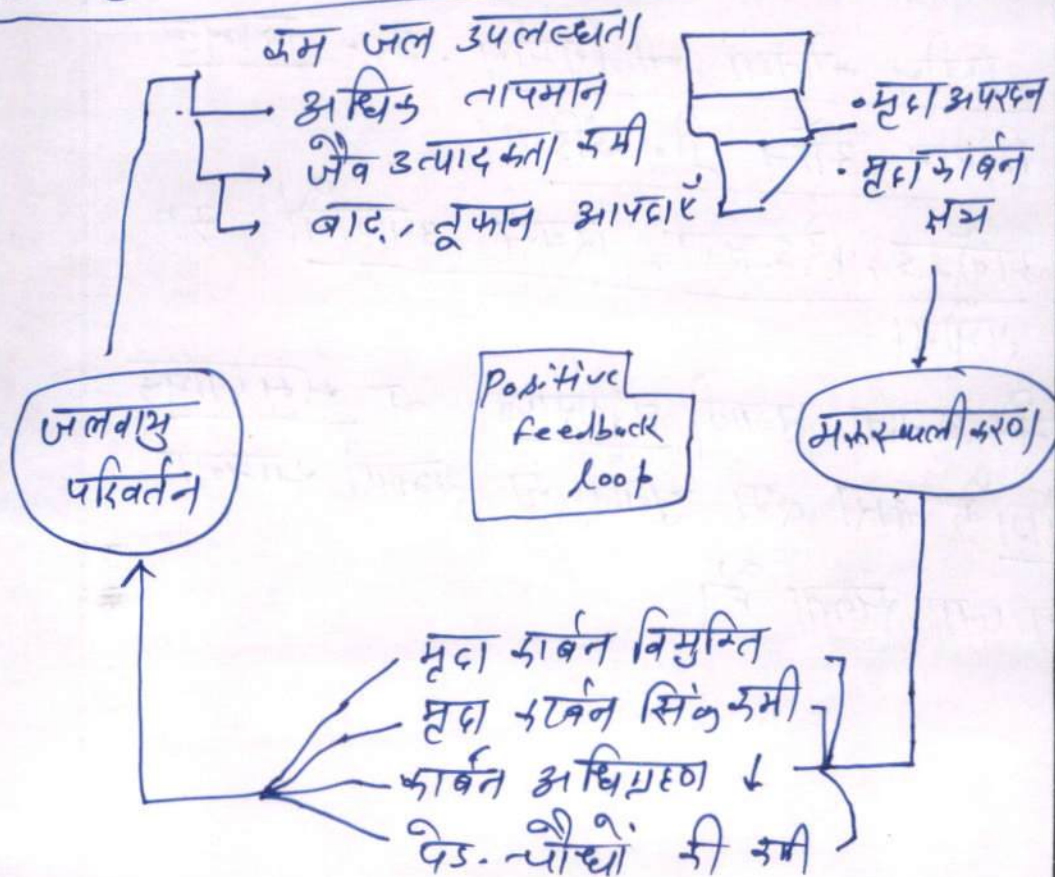 कम जल उपलब्धता
अधिक तापमान
जैव उत्पादकता कमी
बाढ़, तूफान आपदाएँ
• मृदा अपरदन
• मृदा कार्बन
क्षय
जलवायु
परिवर्तन
Positive
feedback
loop
मरुस्थलीकरण
मृदा कार्बन विमुक्ति
मृदा कार्बन सिंक कमी
कार्बन अधिग्रहण ↓
पेड़-पौधों की कमी